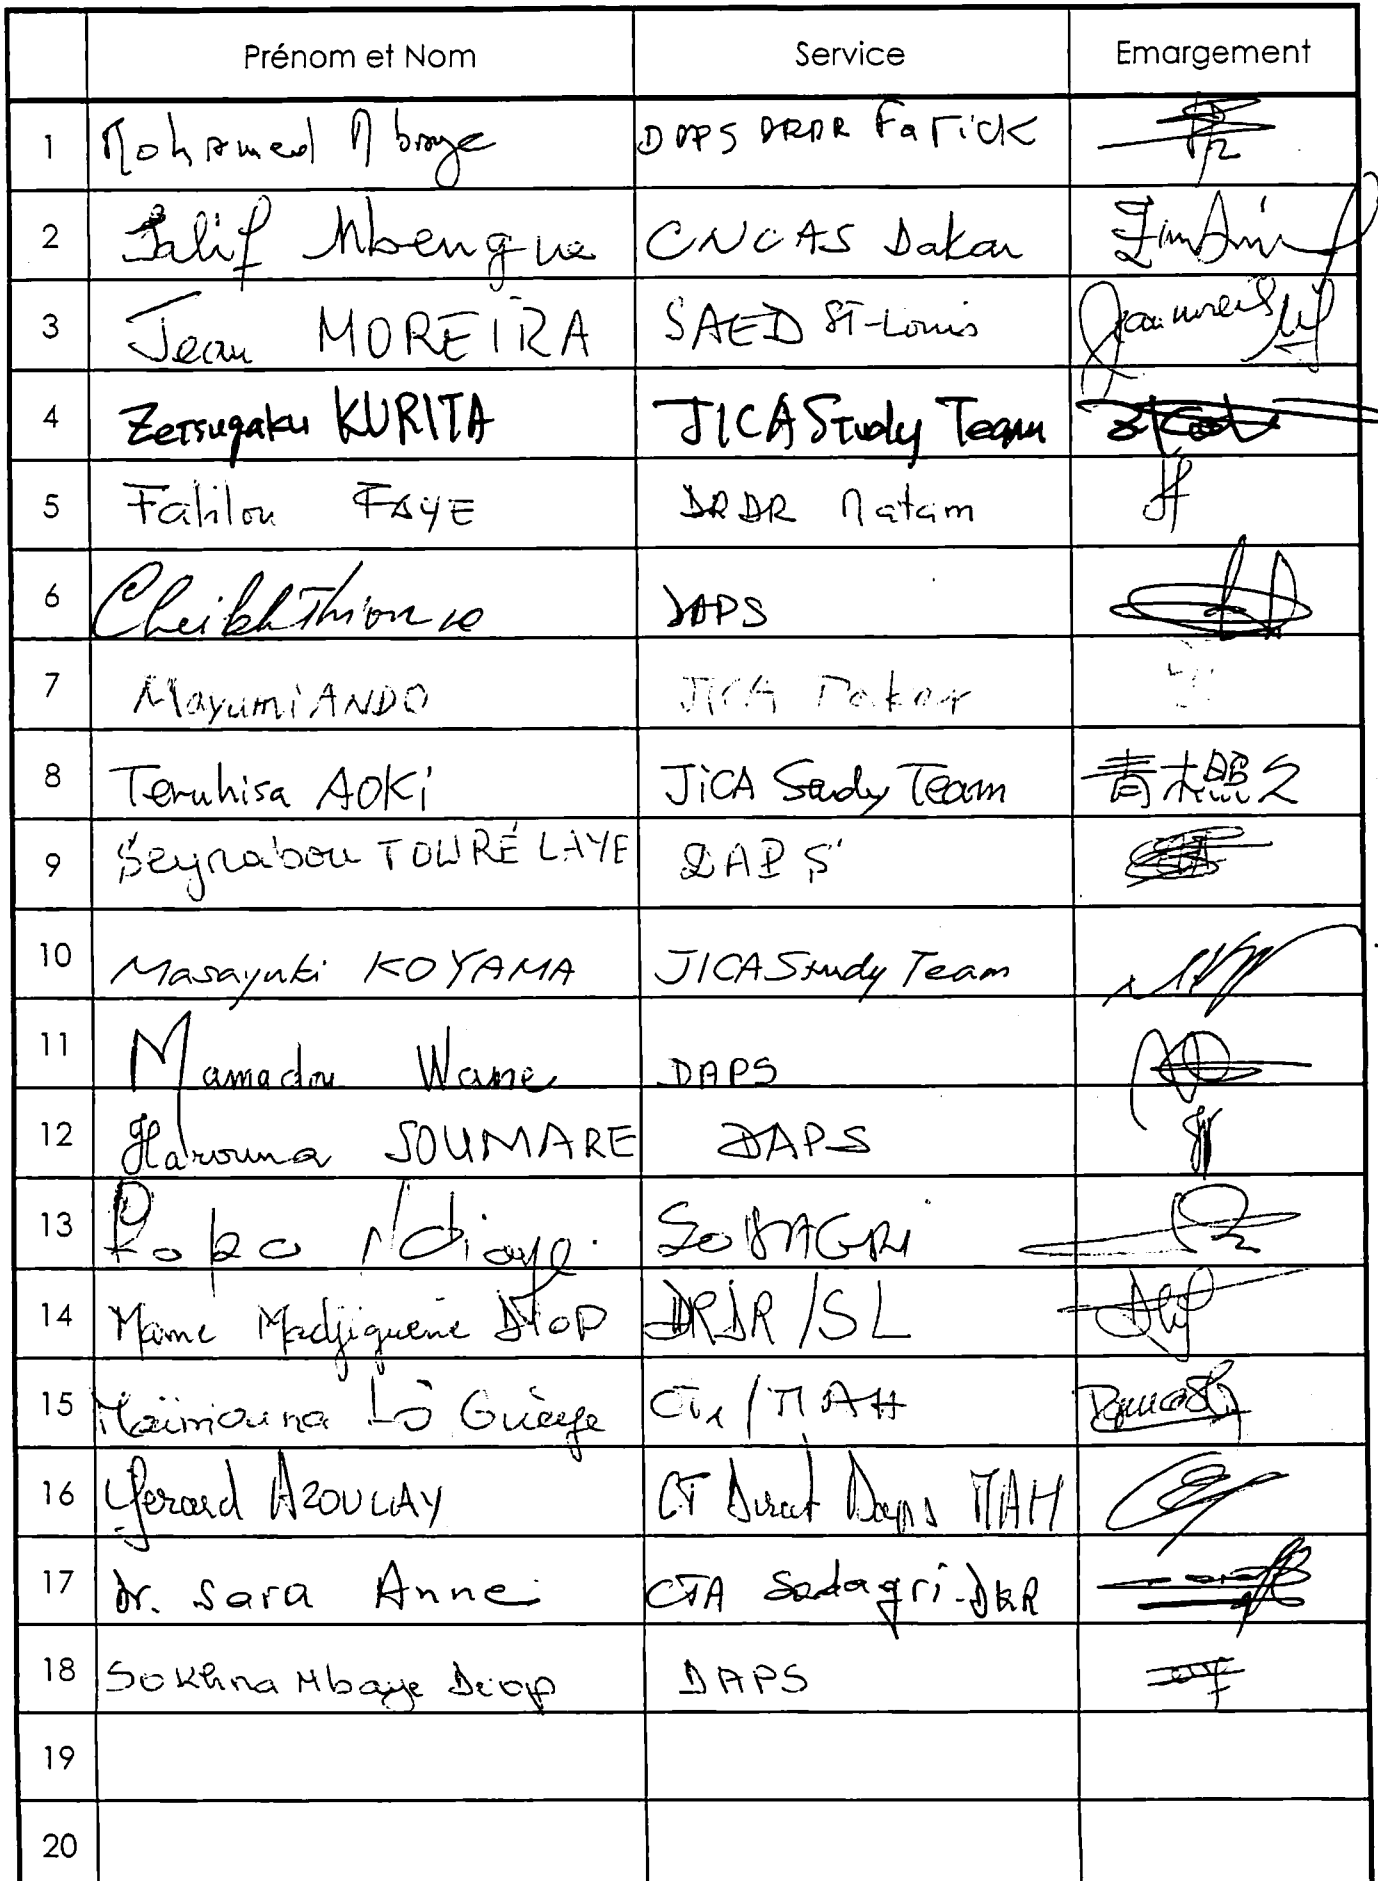 Prénom et Nom Service Emargement
1 Mohamed Mbaye DAPS DRDR Fatick
2 Salif Mbengue CNCAS Dakar
3 Jean MOREIRA SAED ST-Louis
4 Zetsugaku KURITA JICA Study Team
5 Fahlou FAYE DRDR Matam
6 Cheikh Thioune DAPS
7 Mayumi ANDO JICA Dakar
8 Teruhisa AOKI JICA Study Team 青木照久
9 Seynabou TOURÉ LAYE DAPS
10 Masayuki KOYAMA JICA Study Team
11 Mamadou Wane DAPS
12 Harouna SOUMARE DAPS
13 Papa Ndiaye SODAGRI
14 Mame Madjiguène DIOP DRDR/SL
15 Maïmouna Lô Guèye /MAH
16 Gerard AZOULAY CT Daps MAH
17 Dr. Sara Anne CTA Sodagri-DKR
18 Sokhna Mbaye Diop DAPS
19
20